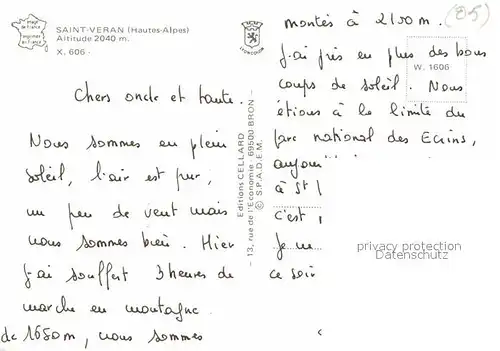 image de France
imprimée en France
SAINT-VERAN (Hautes-Alpes)
Altitude 2040 m.
X. 606 -
Chers oncle et tante.
Nous sommes en plein
soleil, l'air est pur,
un peu de vent mais
nous sommes bien. Hier
j'ai souffert 3 heures de
marche en montagne.
de 1650m, nous sommes
Editions CELLARD
13, rue de l'Economie 69500 BRON -
© S.P.A.D.E.M.
LYONCOLOR
(85)
montés à 2100 m.
J'ai pris en plus des bons
W. 1606
coups de soleil. Nous
étions à la limite du
parc national des Ecrins,
à St
c'est
Je
ce soir
privacy protection
Datenschutz